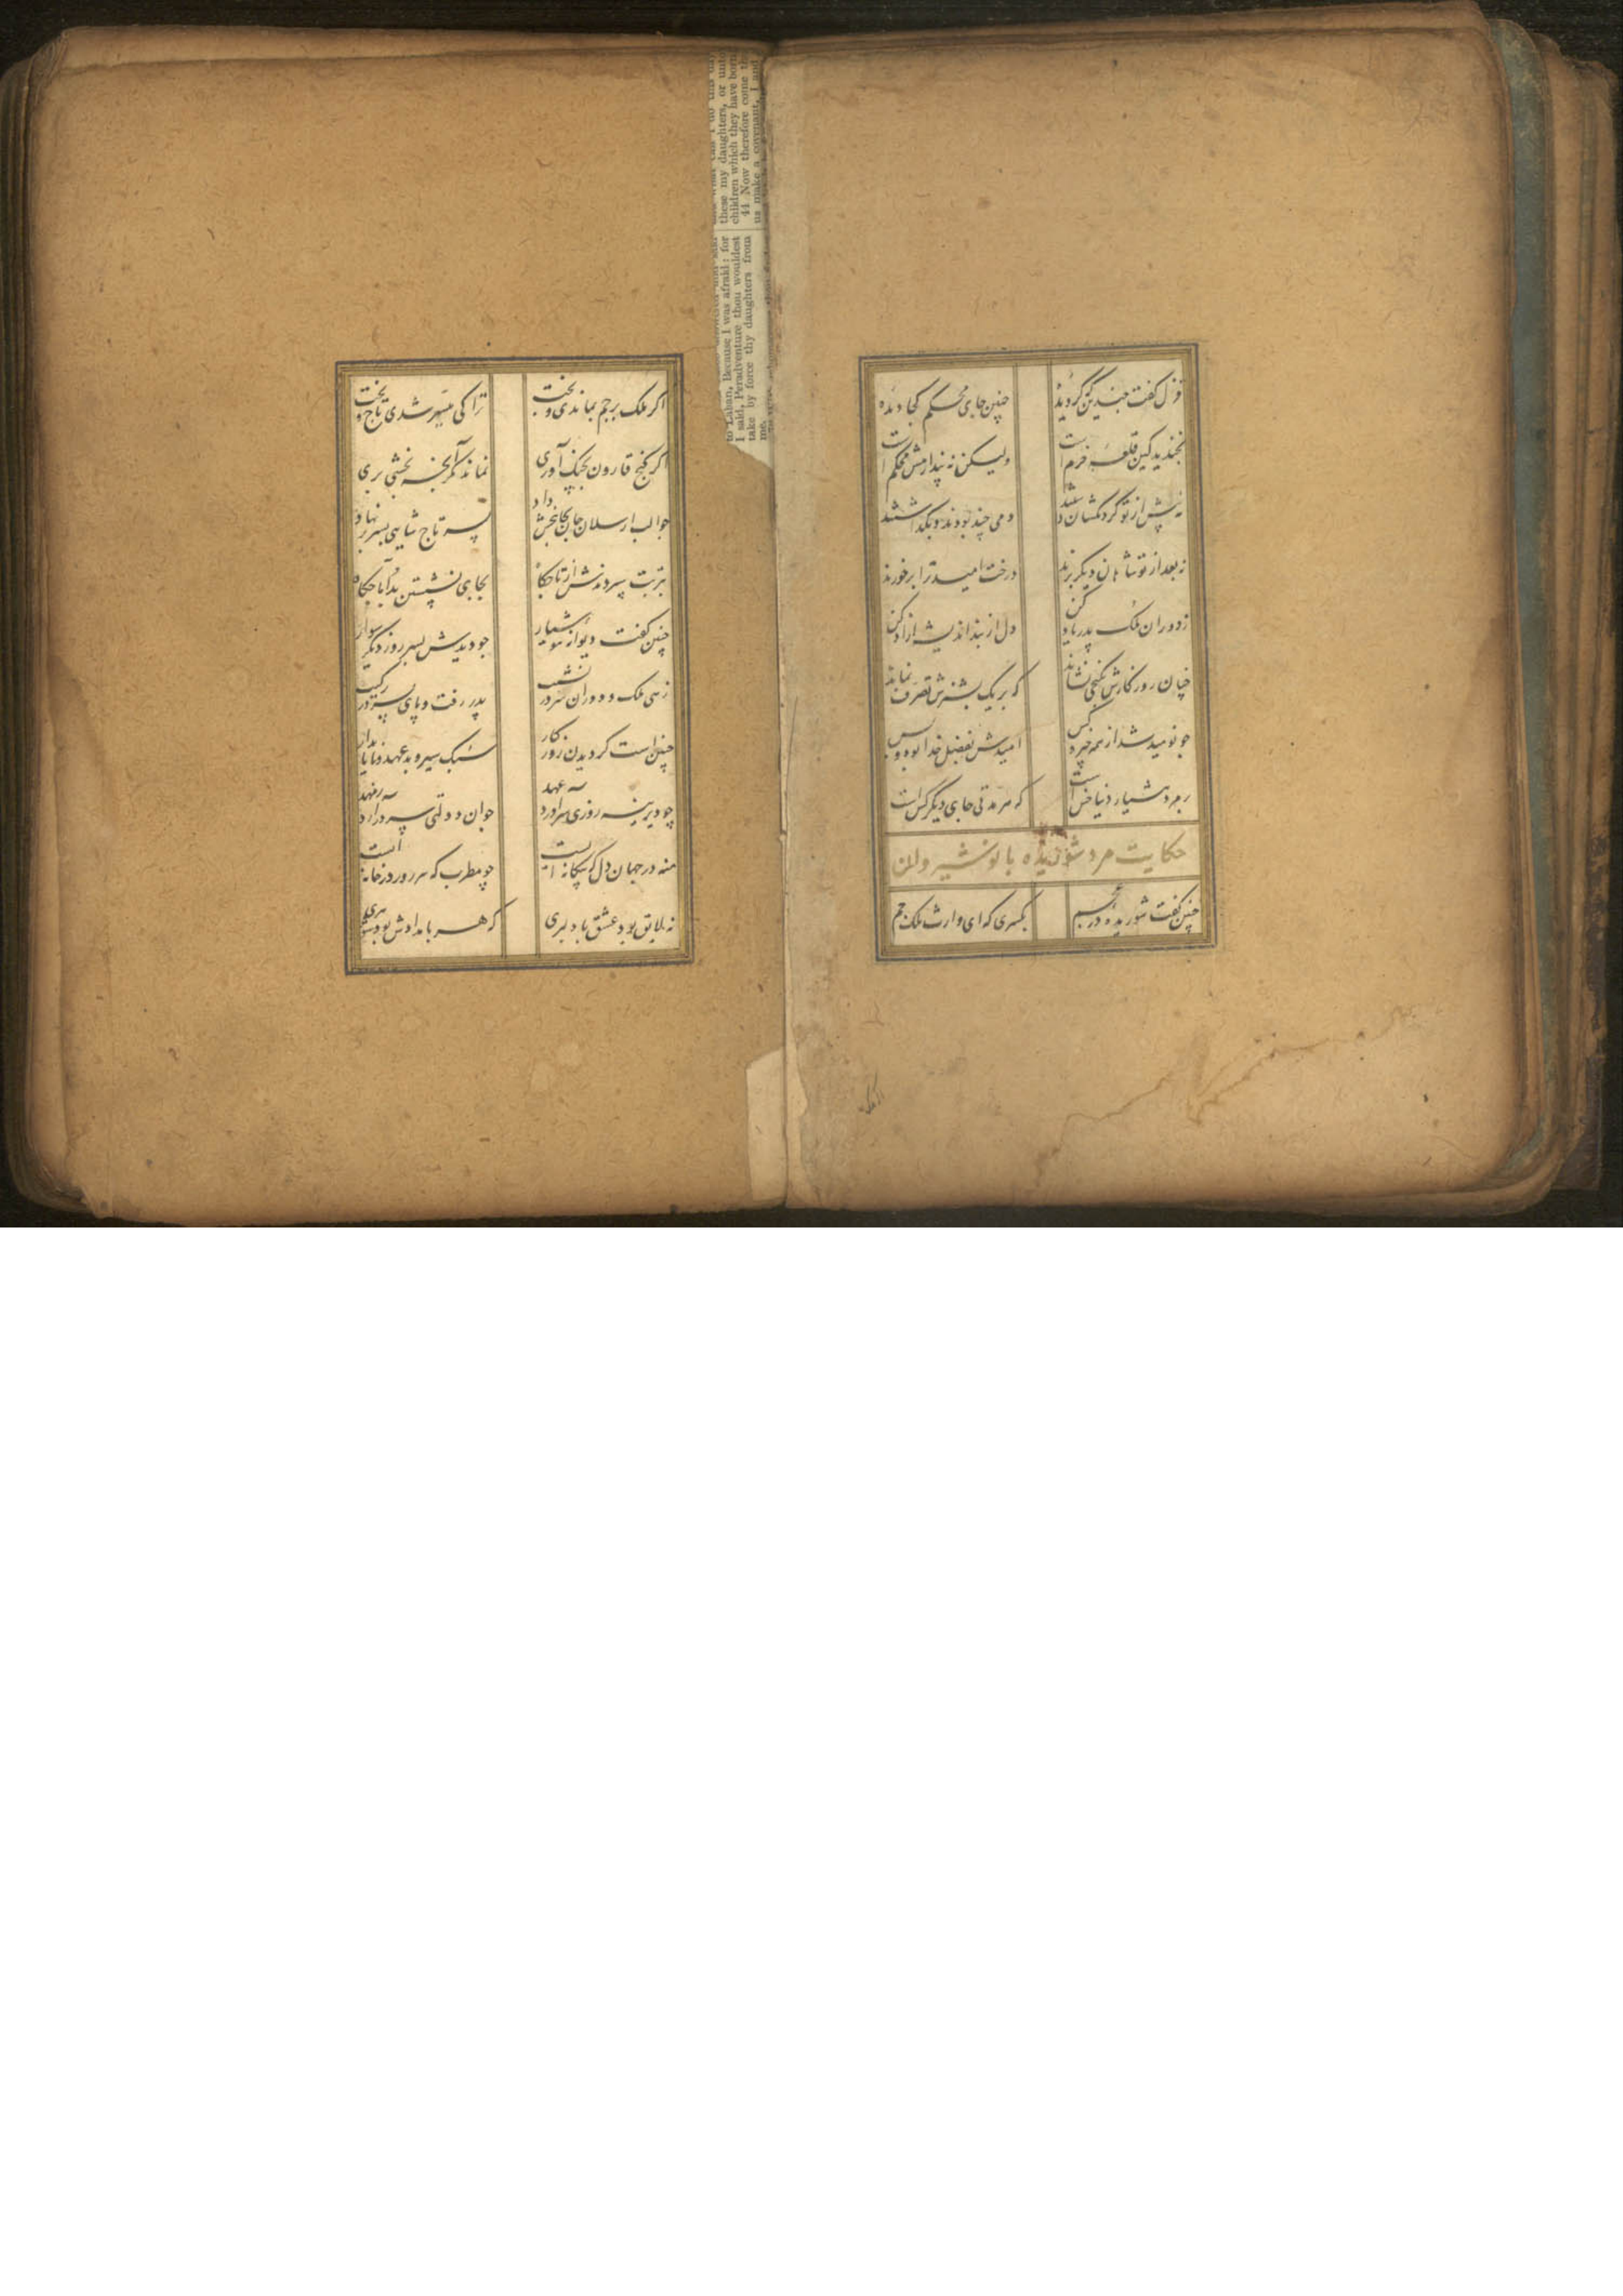 قزل گفت چندین که گردیدهٔ
چنین جای محکم کجا دیدهٔ
بخندید کین قلعهٔ خرم است
ولیکن نه پندارمش محکم است
نه پیش از تو گردنکشان داشتند
دمی چند بودند و بگذاشتند
نه بعد از تو شاهان دیگر برند
درخت امید ترا بر خورند
ز دوران ملک پدر یاد کن
دل از بند اندیشه آزاد کن
چنان روزگارش بکنجی نشاند
که بر یک پشیزش تصرف نماند
چو نومید شد از همه چیز و کس
امیدش بفضل خدا بود و بس
بر مرد هشیار دنیا خس است
که هر مدتی جای دیگر کس است
حکایت مرد شوریده با نوشیروان
چنین گفت شوریدهٔ در عجم
بکسری که ای وارث ملک جم
اگر ملک بر جم بماندی و بخت
ترا کی میسر شدی تاج و تخت
اگر گنج قارون بچنگ آوری
نماند مگر آنچه بخشی بری
چو الب ارسلان جان بجانبخش داد
پسر تاج شاهی بسر بر نهاد
بتربت سپردندش از تاجگاه
نه جای نشستن بد آماجگاه
چنین گفت دیوانهٔ هوشیار
چو دیدش پسر روز دیگر سوار
زهی ملک و دوران سر در نشیب
پدر رفت و پای پسر در رکیب
چنین است گردیدن روزگار
سبک سیر و بدعهد و ناپایدار
چو دیرینه روزی سرآورد عهد
جوان دولتی سر برآرد ز مهد
منه در جهان دل که بیگانه ایست
چو مطرب که هر روز در خانه ایست
نه لایق بود عشق با دلبری
که هر بامدادش بود شوهری
to Laban, Because I was afraid: for
I said, Peradventure thou wouldest
take by force thy daughters from
me.
these my daughters, or unto
children which they have born
44 Now therefore come th
us make a covenant, I and